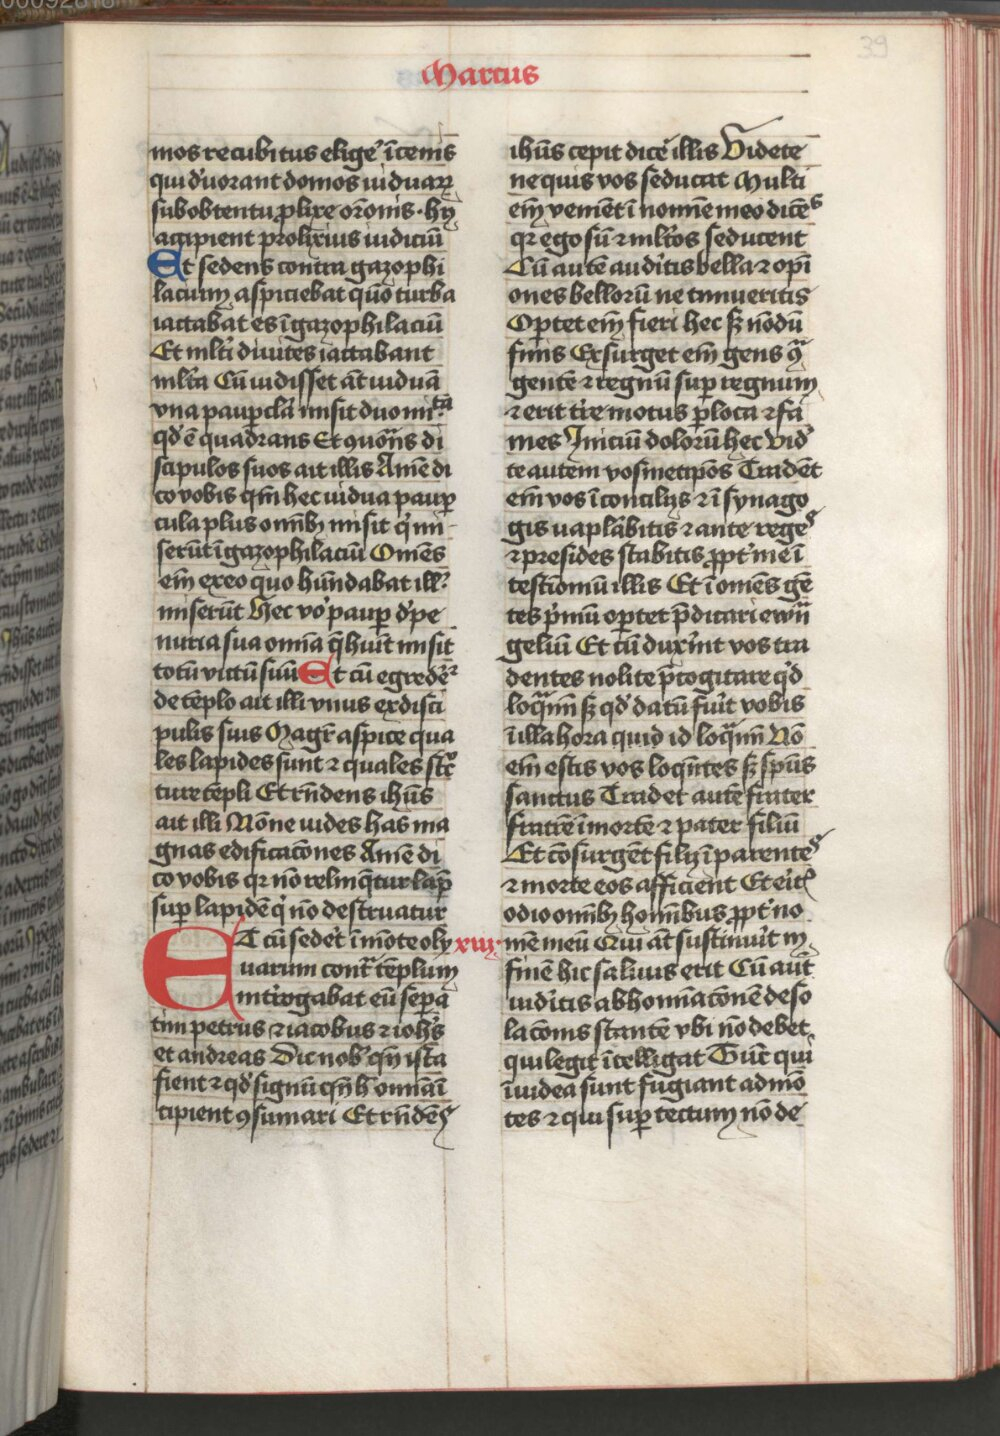 39
Marcus
mos recubitus elige᷒ ī cenis
qui d'uorant domos uiduaꝝ
sub obtentu ꝓlixe or̄onis · hij
accipient prolixius iudiciū
Et sedens contra gazophi
lacium aspiciebat quō turba
iactabat es ī gazophilaciū
Et ml̄ti diuites iactabant
ml̄ta Cū uidisset āt uiduā
vna paup̄clā misit duo mita
qd̓ ē quadrans Et ꝯuocans di
scipulos suos ait illis Amē di
co vobis qm̄ hec uidua paup
cula plus om̄ibꝫ misit q̇ mi
serūt ī gazophilaciū Omēs
em̄ ex eo quo hūndabat ill'
miserūt Hec vo᷒ paup̄ d'pe
nuria sua om̄ia q̄ huit misit
totū victū suū Et cū egrede᷒r
de tēplo ait illi vnus ex disci
pulis suis Magr̄ aspice qua
les lapides sunt ⁊ quales stͬc
ture tēpli Et rn̄dens ih̄us
ait illi Nōne uides has ma
gnas edificacōnes Amē di
co vobis qꝛ nō relinq̄tur lap̄
suꝑ lapidē q̇ nō destruatur
ET cū sedet᷒ ī mōte oly xiij·
uarum contᷓ tēplum
intr̄ogabat eū seꝑa
tim petrus ⁊ iacobus ⁊ ioh̄s
et andreas Dic nob᷒ qn̄ ista
fient ⁊ qd̓ signū qn̄ h' om̄ia ī
cipient ꝯsumari Et rn̄dēs
ih̄us cepit dice᷒ illis Videte
ne quis vos seducat Multi
em̄ veniēt ī nomīe meo dicēs
qꝛ ego sū ⁊ ml̄tos seducent
Cū autē audi᷒tis bella ⁊ opī
ones bellorū ne timueritis
Oꝑtet em̄ fieri hec sꝫ nōdū
finis Exsurget em̄ gens qᷓ
gentē ⁊ regnū suꝑ regnum
⁊ erit tr̄e motus ꝑ loca ⁊ fa
mes Iniciū dolorū hec vid᷒
te autem vosmetipōs Tradēt
em̄ vos ī concilijs ⁊ ī synago
gis uaplabitis ⁊ ante reges
⁊ presides stabitis ꝓpt᷒ me ī
testimoniū illis Et ī omēs gē
tes p̓mū oꝑtet p̄dicari ewā
gelium Et cū dux᷒int vos tra
dentes nolite p̄cogitare qd̓
loqᷓmī sꝫ qd̓ datū fu᷒it vobis
ī illa hora quid id loqᷓmī Nō
em̄ estis vos loq̄ntes sꝫ sp̄us
sanctus Tradet autē frater
fratrē ī mortē ⁊ pater filiū
Et cōsurgēt filij ī parentes
⁊ morte eos afficient Et eit᷒
odio om̄ibꝫ homībus ꝓpt᷒ no
mē meū Qui āt sustinu᷒it in
finē hic saluus erit Cū aūt
uid᷒itis abhomīacōnē deso
lacōnis stantē vbi nō debet
qui legit ītelligat Tūc qui
ī iudea sunt fugiant ad mō
tes ⁊ qui suꝑ tectum nō de